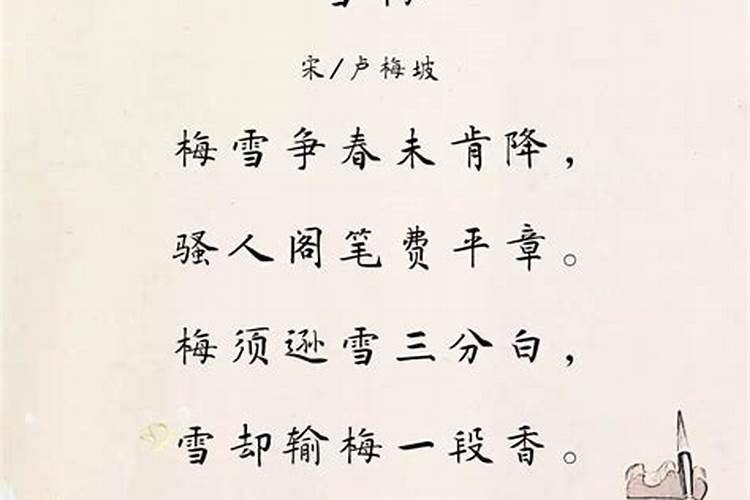 宋/卢梅坡
梅雪争春未肯降，
骚人阁笔费平章。
梅须逊雪三分白，
雪却输梅一段香。